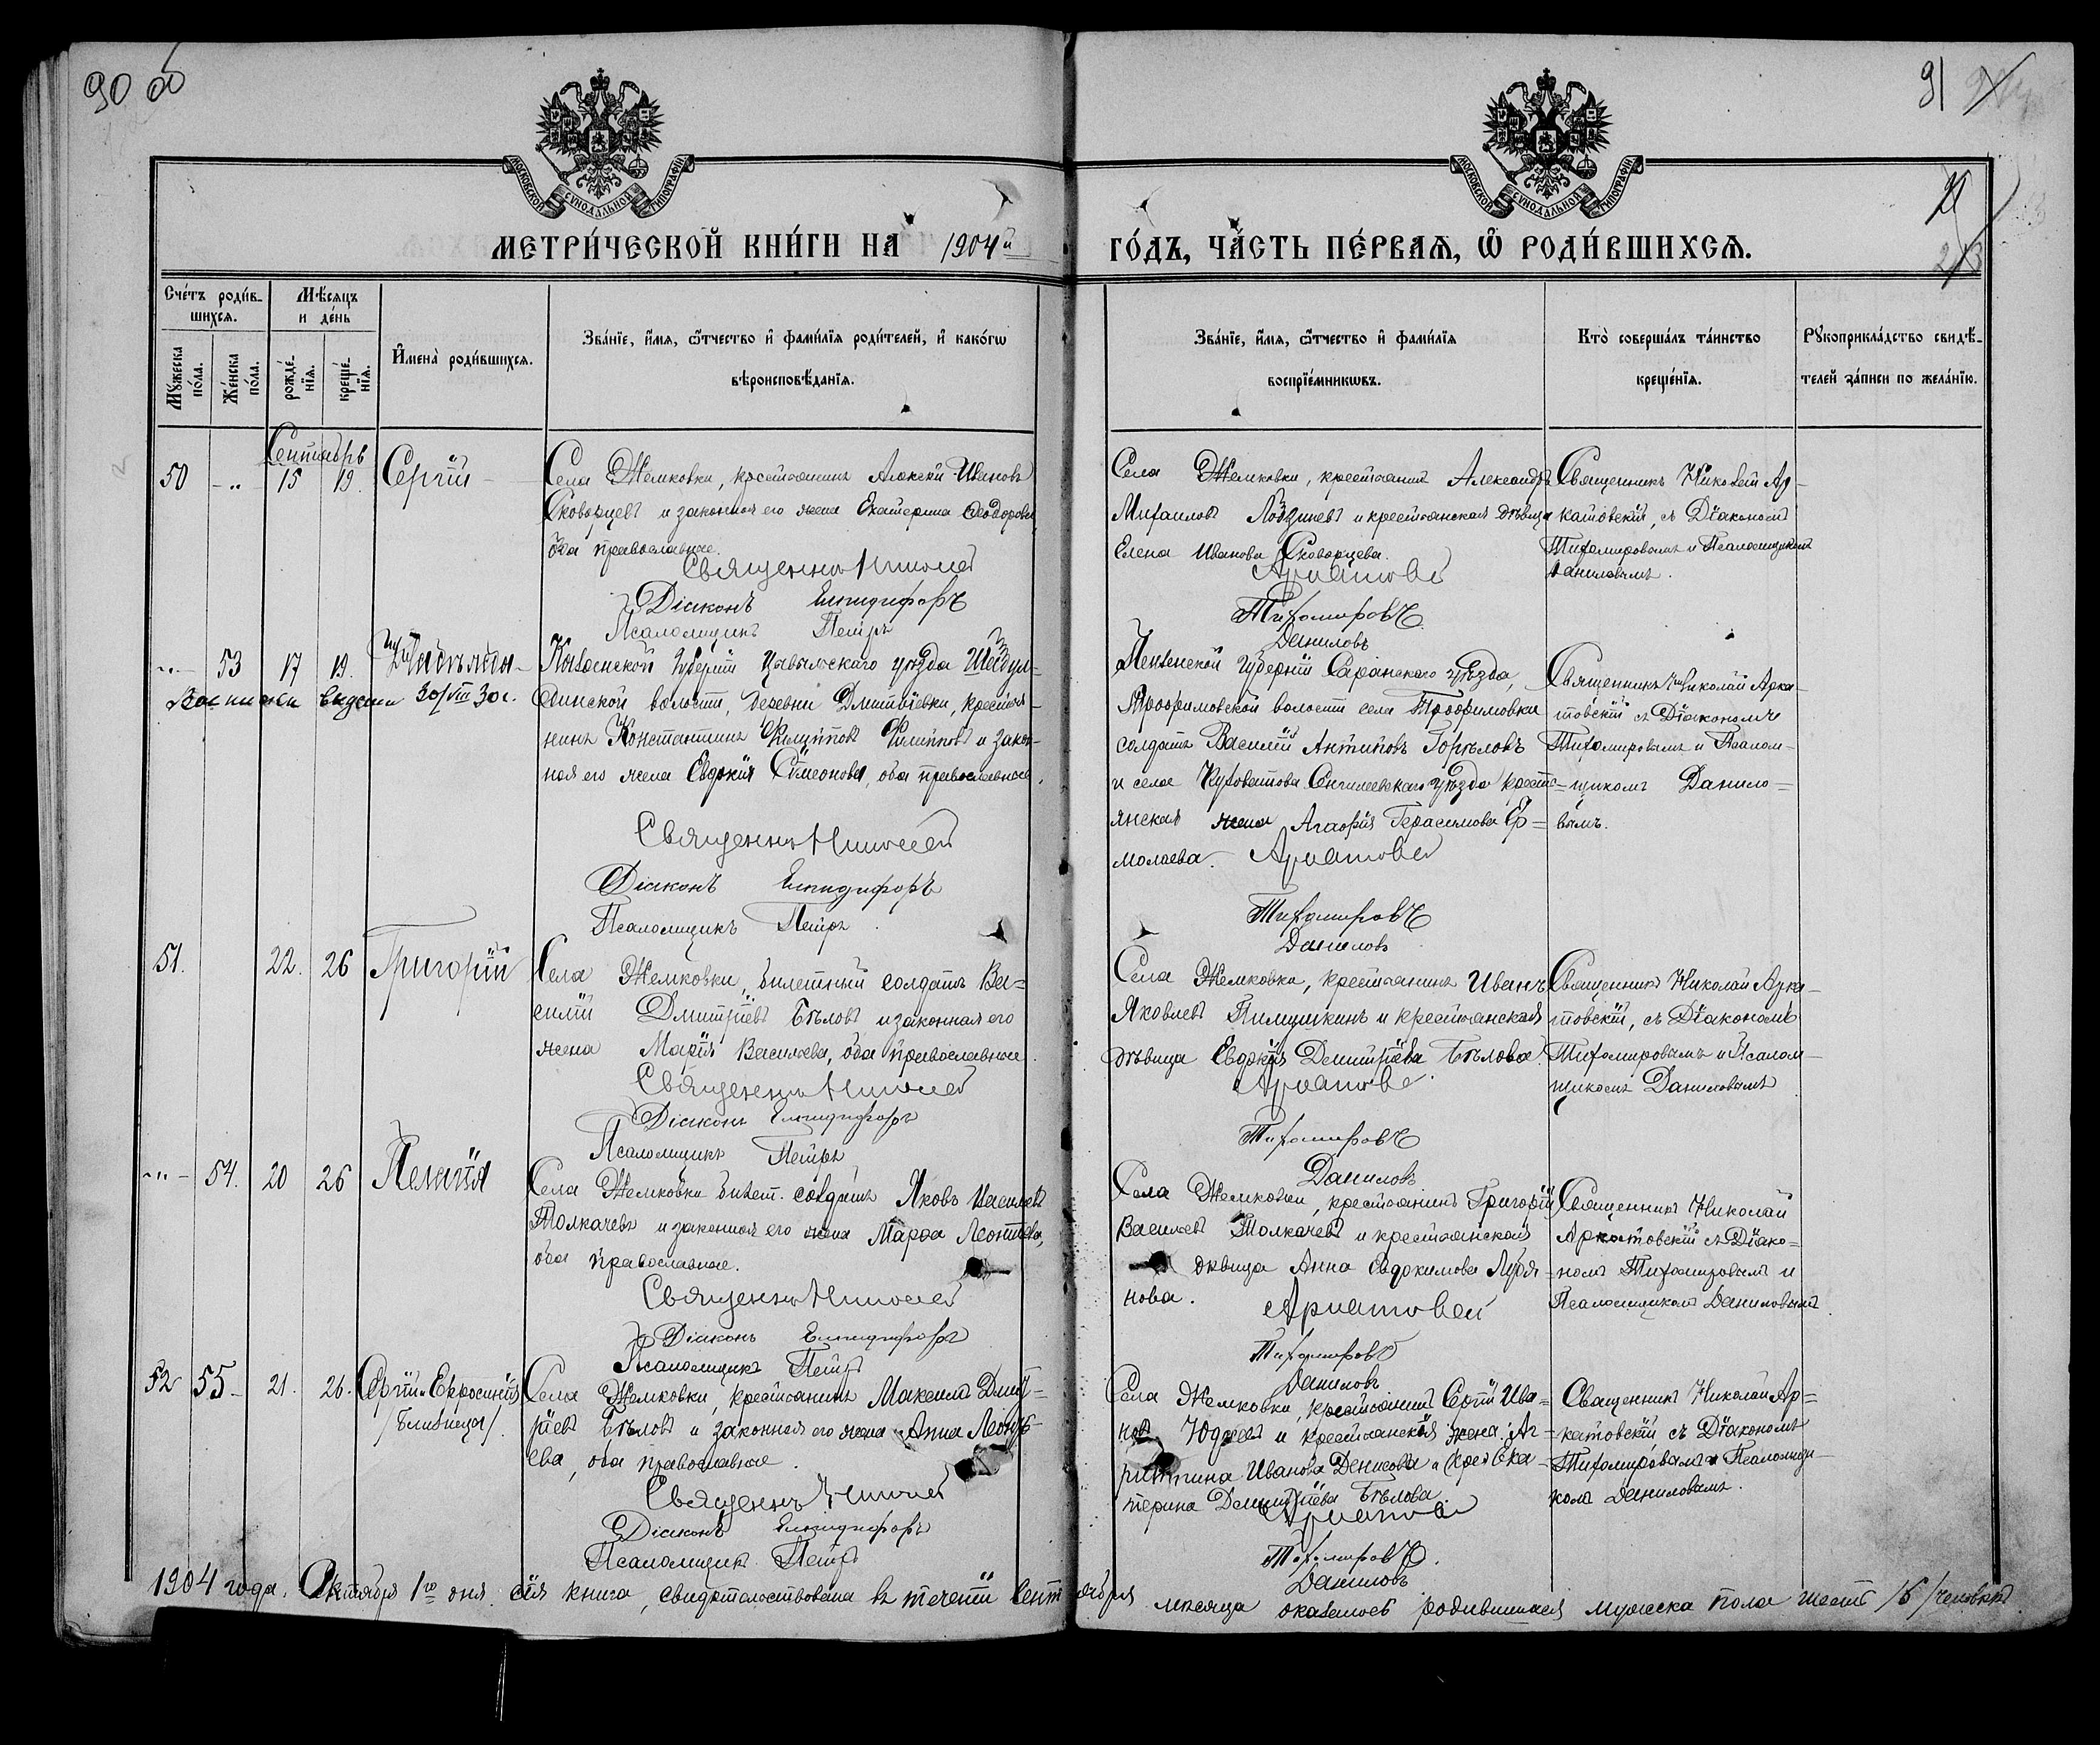 90 об
91
МОСКОВСКОЙ СѴНОДАЛЬНОЙ ТИПОГРАФІИ
МОСКОВСКОЙ СѴНОДАЛЬНОЙ ТИПОГРАФІИ
МЕТРИ́ЧЕСКОЙ КНИ́ГИ НА 1904й ГО́ДЪ, ЧА́СТЬ ПЕ́РВАЯ, Ѽ РОДИ́ВШИХСЯ.
Сче́тъ роди́в-
шихся.
Мѣ́сяцъ
и де́нь
Мꙋ́жеска по́ла.
Же́нска по́ла.
рожде́-
нїя.
креще́-
нїя.
И҆мена̀ роди́вшихся.
Зва́нїе, и҆́мя, ѻ҆́тчество и҆ фами́лїя роди́телей, и҆ како́гѡ
вѣроисповѣ́данїя.
Зва́нїе, и҆́мя, ѻ҆́тчество и҆ фами́лїя
воспрїе́мникѡвъ.
Кто̀ соверша́лъ та́инство
креще́нїя.
Рꙋкоприкла́дство свидѣ́-
телей за́писи по жела́нїю.
Сентябрь
50 - „ 15 19. Сергій
Села Жемковки, крестьянинъ Алексій Ивановъ
Скворцевъ и законная его жена Екатерина Ѳеодорова,
оба православные.
Священникъ Николай
Діаконъ Елпидифоръ
Псаломщикъ Петръ
Села Жемковки, крестьянинъ Александръ
Михаиловъ Лобзиневъ и крестьянская дѣвица
Елена Иванова Скворцева.
Аркатовскій
Тихомировъ
Даниловъ
Священникъ Николай Ар-
катовскій, съ Діакономъ
Тихомировымъ и Псаломщикомъ
Даниловымъ.
„ - 53 17 19.
30/VIII 30 г.
Казанской губерніи Цивильскаго уѣзда
волости, деревни Дмитріевки, крестья-
нинъ Константинъ Филипповъ Филипповъ и закон-
ная его жена Евдокія Симеонова, оба православные.
Священникъ Николай
Діаконъ Елпидифоръ
Псаломщикъ Петръ.
Пензенской губерніи Саранскаго уѣзда,
Трофимовской волости села Трофимовки
солдатъ Василій Антиповъ Горѣловъ
и села Куроватова Сенгилеевскаго уѣзда кресть-
янская жена Агафія Герасимова Ер=
молаева.
Аркатовскій
Тихомировъ
Даниловъ
Священникъ Николай Арка-
товскій съ Діакономъ
Тихомировымъ и Псалом-
щикомъ Данило=
вымъ.
51. 22. 26 Григорій
Села Жемковки, билетный солдатъ Ва=
силій Дмитріевъ Бѣловъ и законная его
жена Марія Васильева, оба православные.
Священникъ Николай
Діаконъ Елпидифоръ
Псаломщикъ Петръ
Села Жемковки, крестьянинъ Иванъ
Яковлевъ Пилюшкинъ и крестьянская
дѣвица Евдокія Димитріева Бѣлова.
Аркатовскій
Тихомировъ
Даниловъ
Священникъ Николай Арка-
товскій, съ Діакономъ
Тихомировымъ и Псалом-
щикомъ Даниловымъ
„ - 54. 20 26 Пелагія
Села Жемковки билет. солдатъ Яковъ Васильевъ
Толкачевъ и законная его жена Марѳа Леонтьева,
оба православные.
Священникъ Николай
Діаконъ Елпидифоръ
Псаломщикъ Петръ
Села Жемковки, крестьянинъ Григорій
Васильевъ Толкачевъ и крестьянская
дѣвица Анна Евдокимова
нова.
Аркатовскій
Тихомировъ
Даниловъ
Священникъ Николай
Аркатовскій съ Діако=
номъ Тихомировымъ и
Псаломщикомъ Даниловымъ.
52 55 - 21. 26. Сергій и Евфросинія
/близнецы/.
Села Жемковки, крестьянинъ Максимъ Дмит-
ріевъ Бѣловъ и законная его жена Анна Леонть-
ева, оба православные.
Священникъ Николай
Діаконъ Елпидифоръ
Псаломщикъ Петръ
Села Жемковки, крестьянинъ Сергій Ива=
новъ Юдаевъ и крестьянская жена: Аг-
риппина Иванова Денисова и крес. Ека-
терина Димитріева Бѣлова.
Аркатовскій
Тихомировъ.
Даниловъ
Священникъ Николай Ар=
катовскій съ Діакономъ
Тихомировымъ и Псаломщи-
комъ Даниловымъ.
1904 года. Октября 1го дня. сія книга, свидѣтельствована въ теченіи сентября мѣсяца оказалось родившихся мужеска пола шесть /6/ человѣкъ